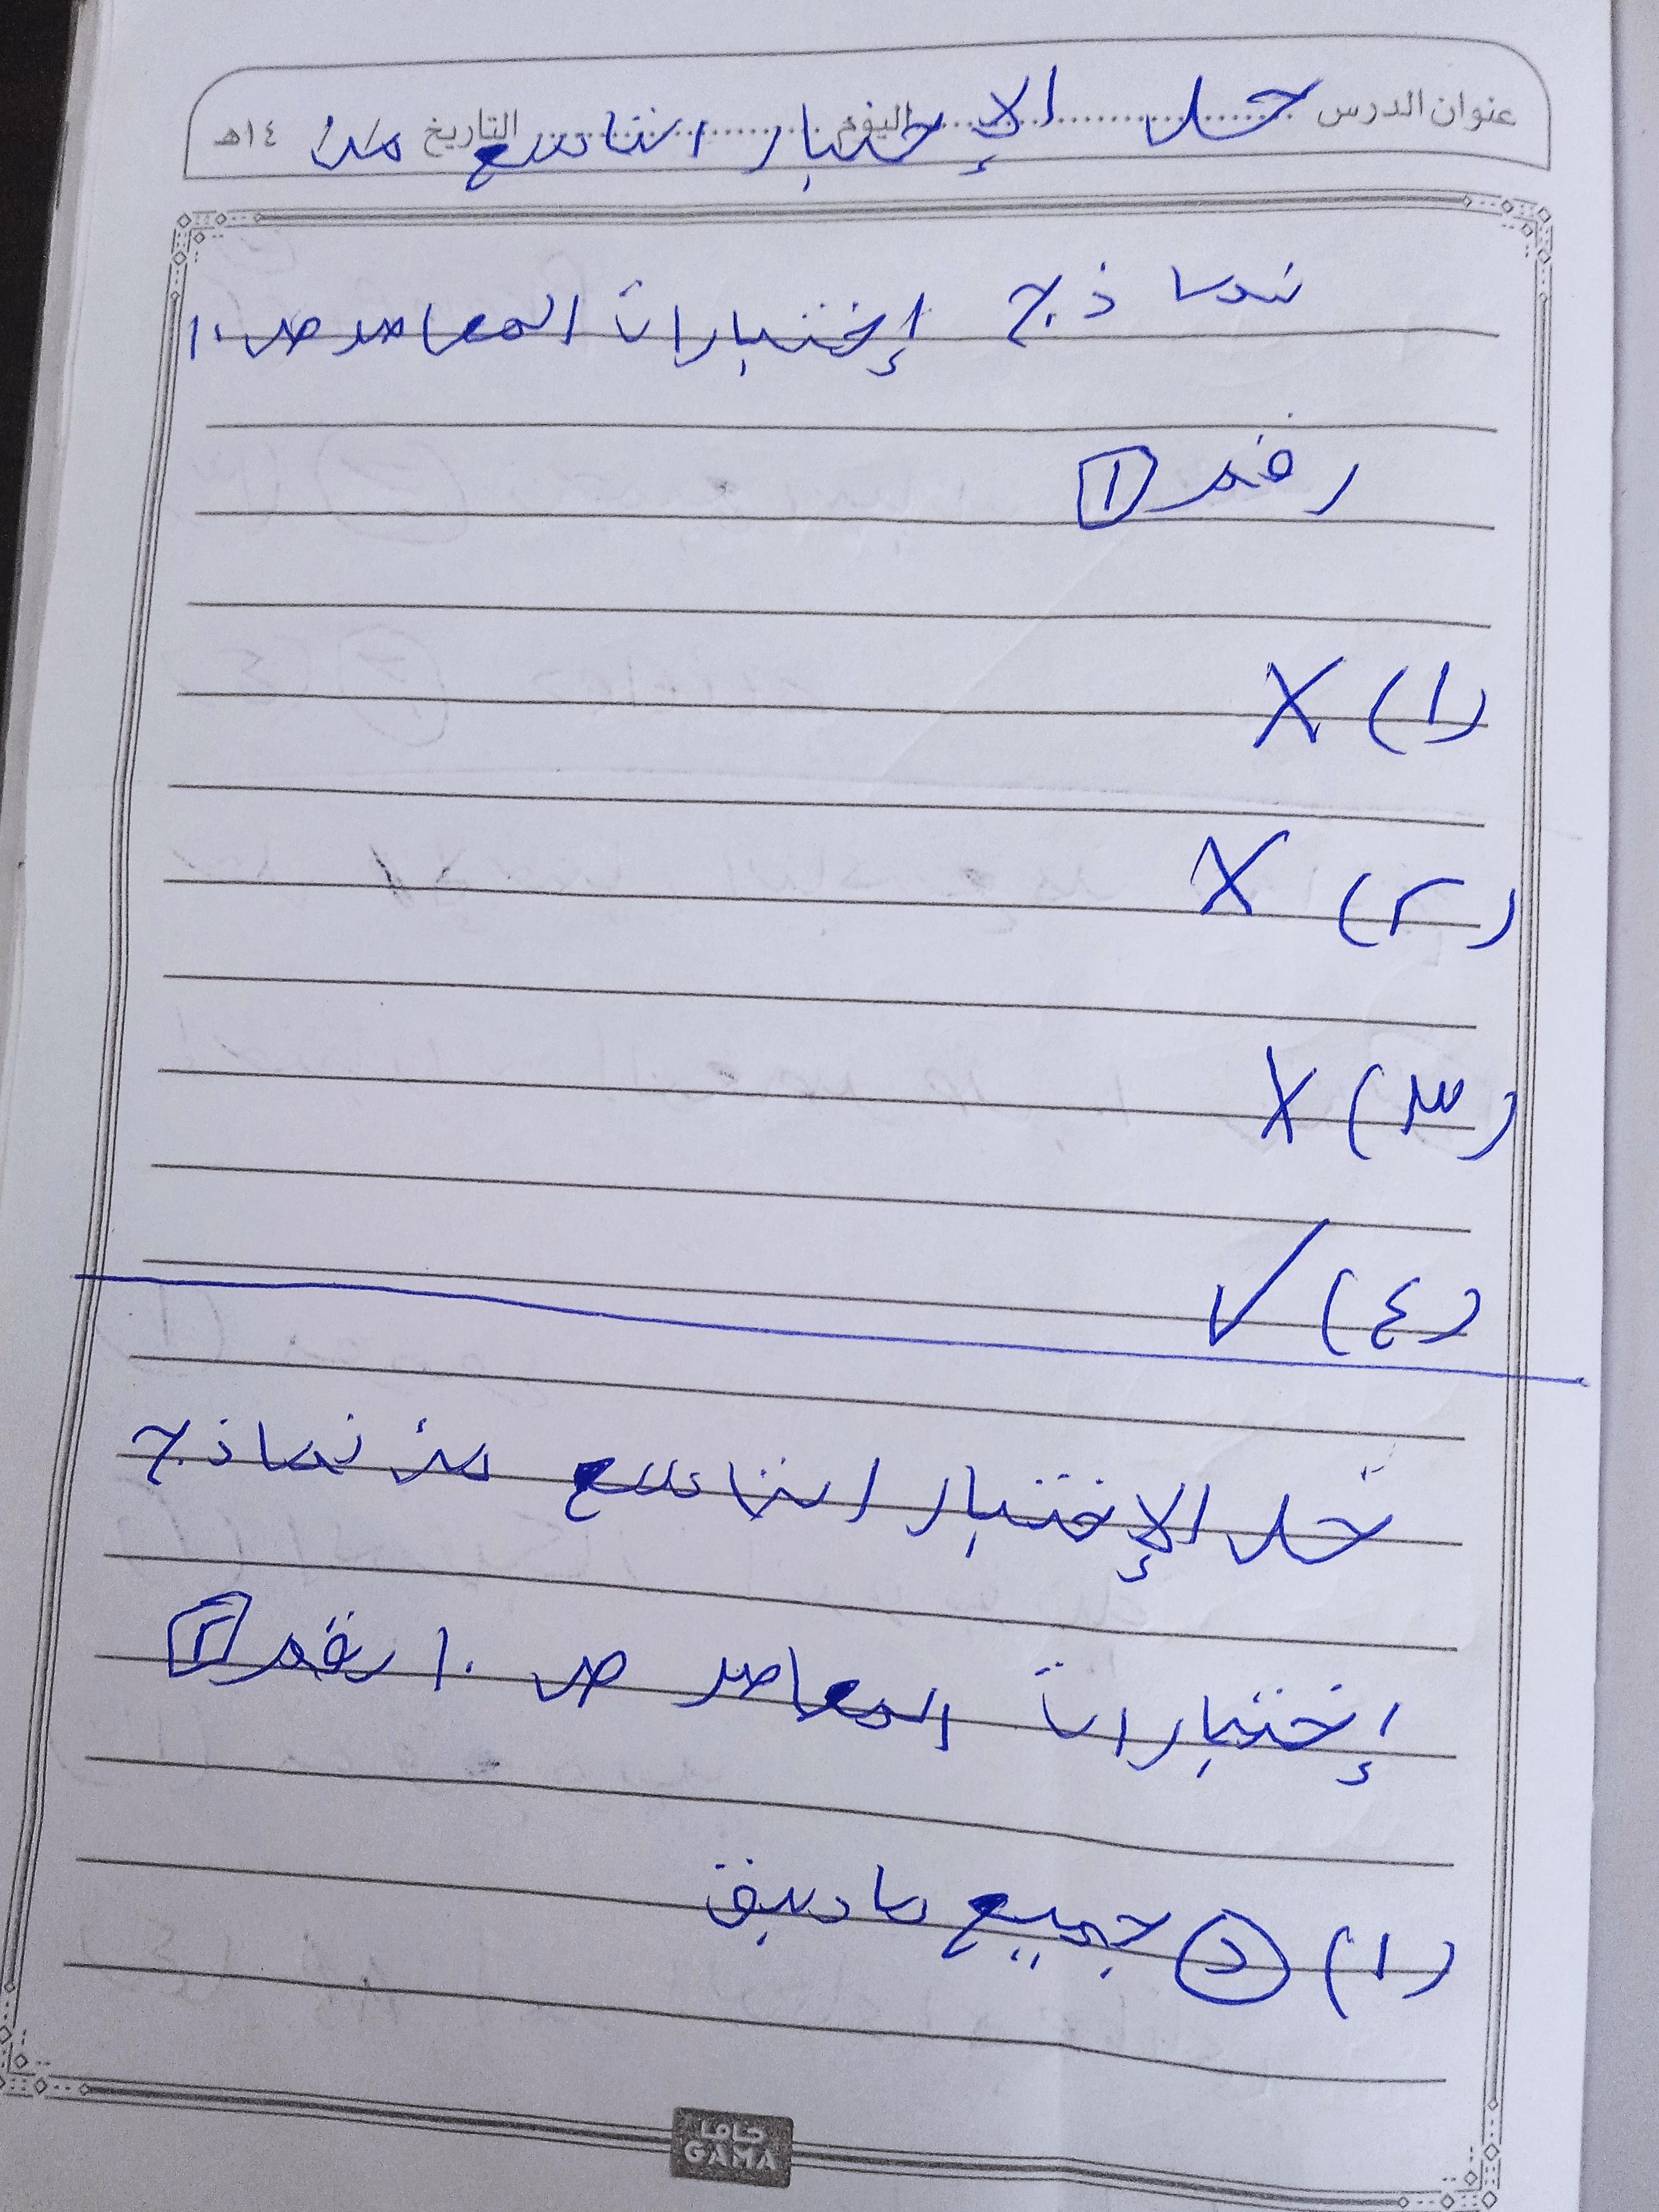 عنوان الدرس ............ اليوم ............ التاريخ ١٤هـ
حل الإختبار التاسع من
نماذج إختبارات المعاصر ص ١٠
رقم ١
(١) X
(٢) X
(٣) X
(٤) ✓
حل الإختبار التاسع من نماذج
إختبارات المعاصر ص ١٠ رقم ٢
(١) د جميع ما سبق
جاما
GAMA